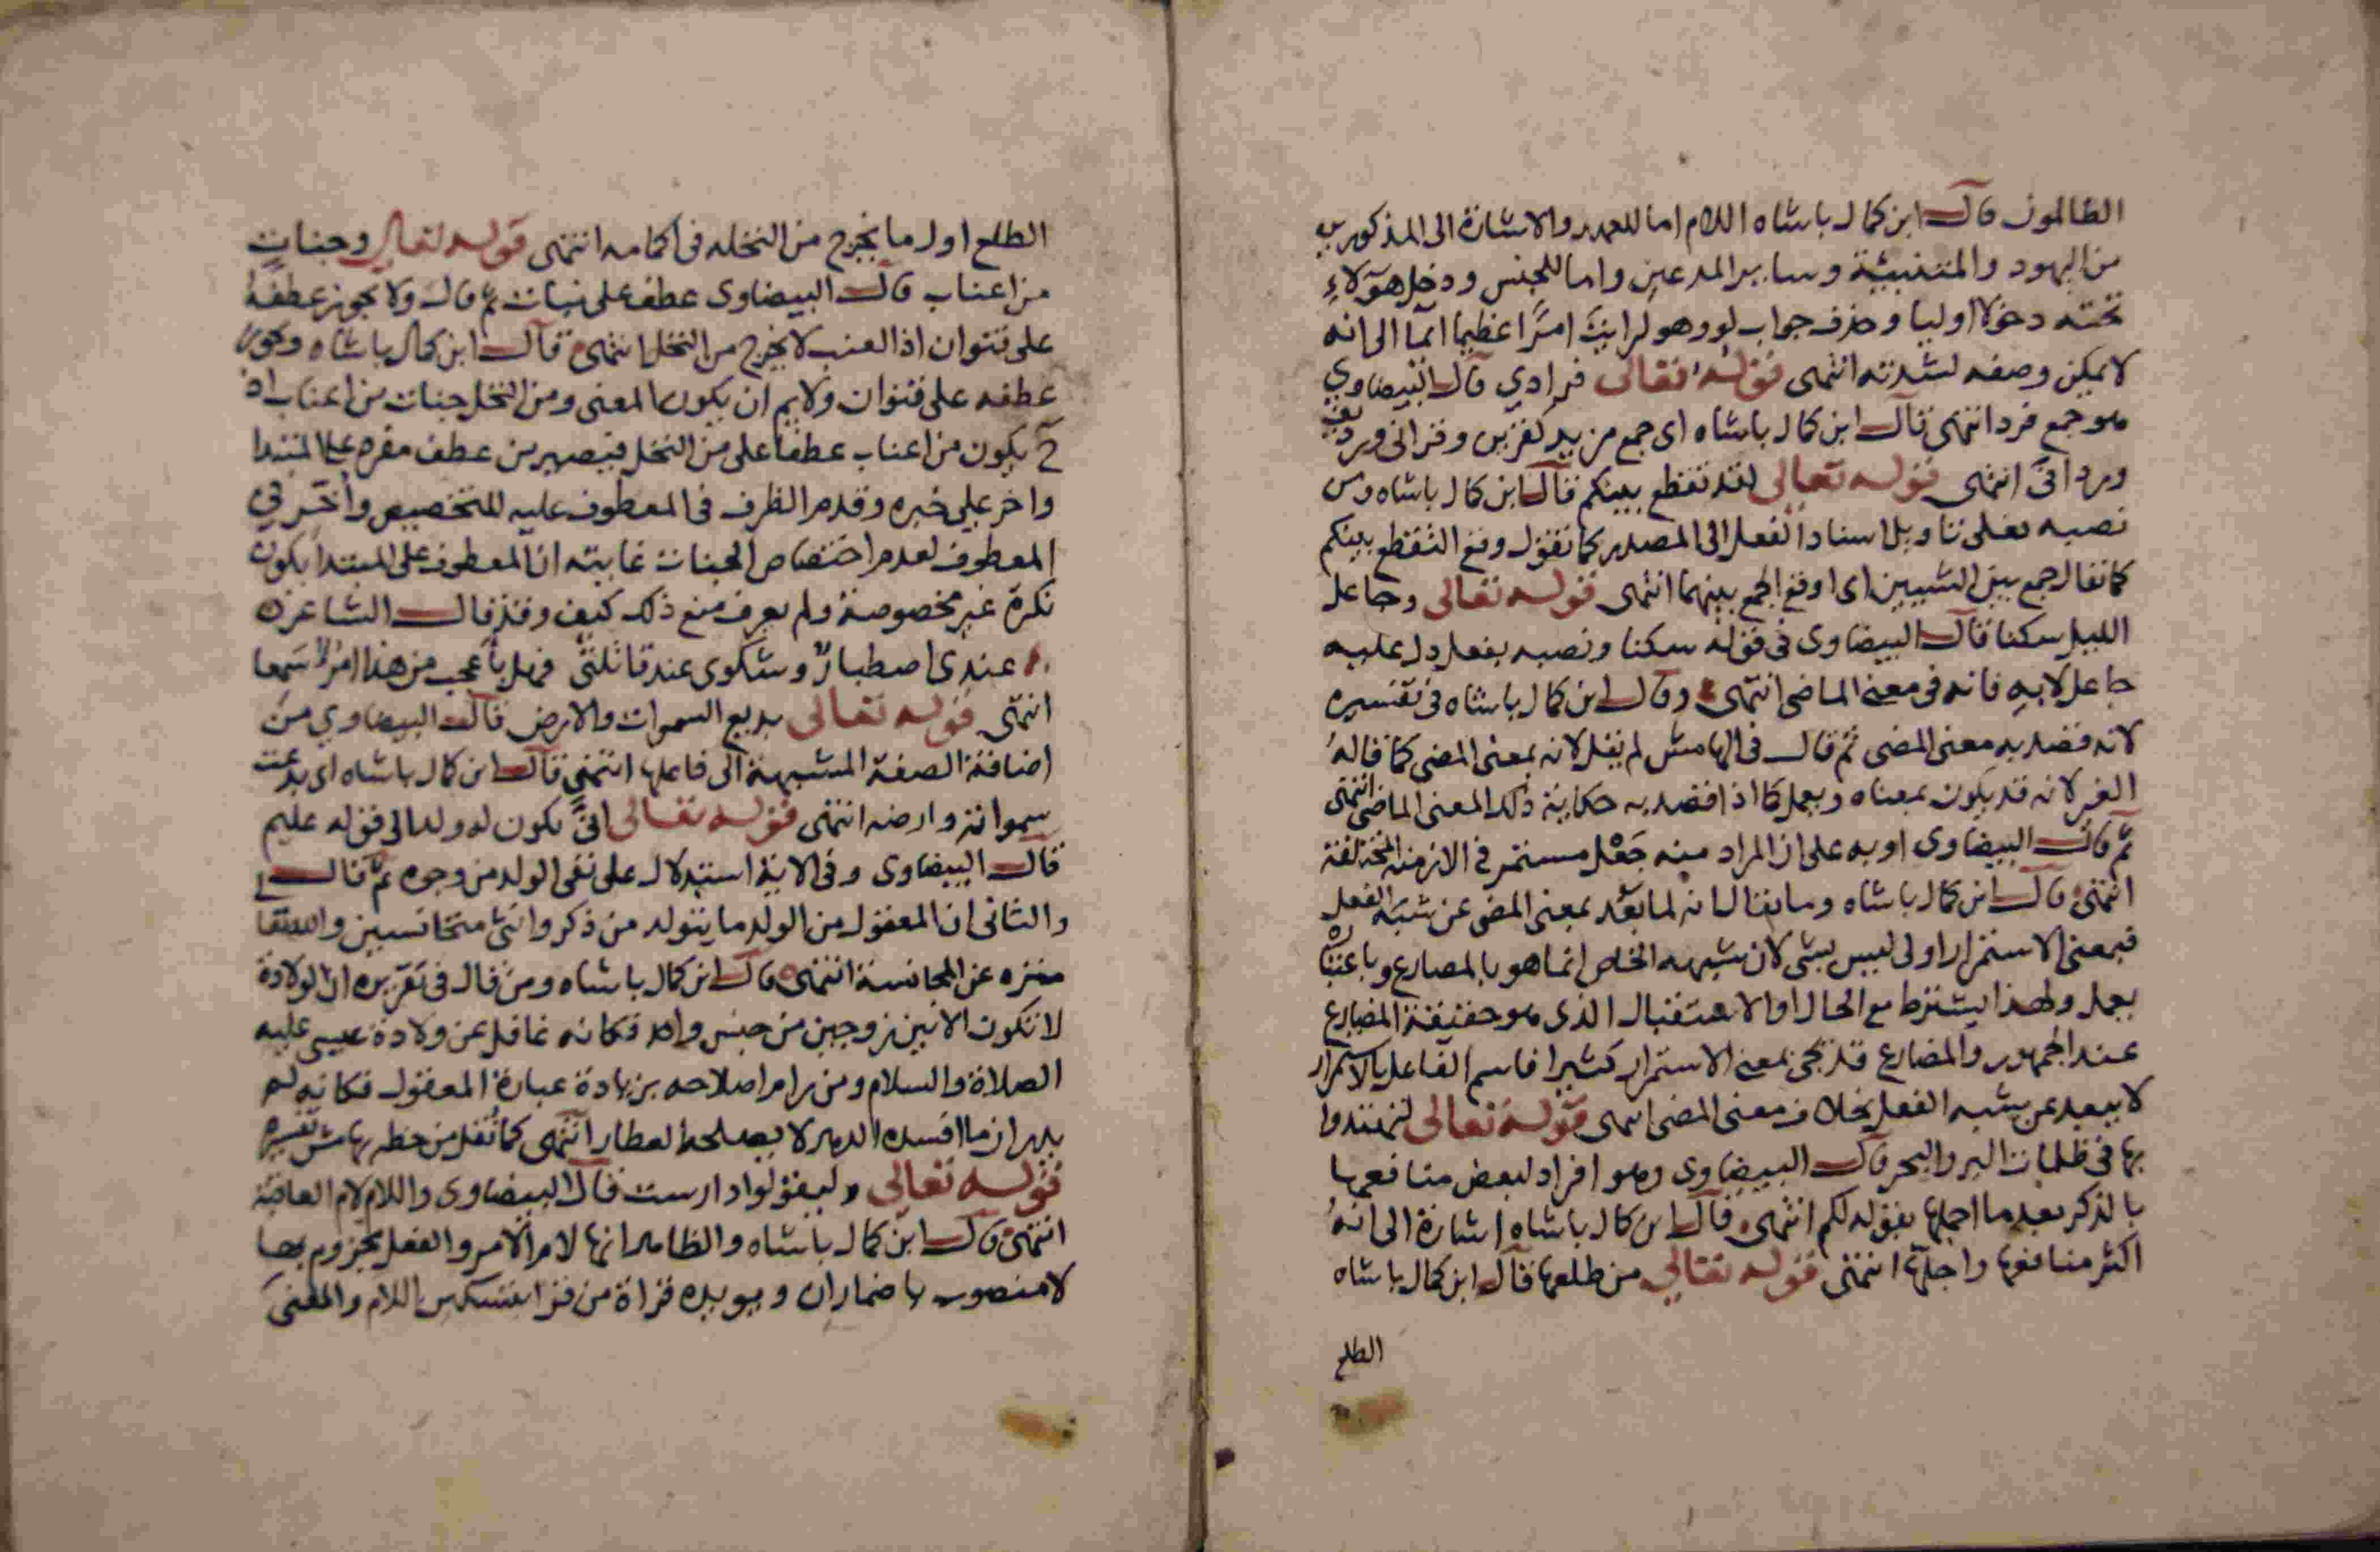 الظالمون قال ابن كمال باشاه اللام اما للعهد والاشارة الى المذكورين
من اليهود والمتنبئة وساير المدعين واما للجنس ودخل هؤلاء
تحته دخولا اوليا وحذف جواب لو وهو لرايتَ امرًا عظيما ايماً الى انه
لا يمكن وصفه لشدته انتهى قوله تعالى فرادي قال البيضاوي
هو جمع فرد انتهى قال ابن كمال باشاه اى جمع مزيد كقرين وقرانى ورديف
وردافىَ انتهى قوله تعالى لقد تقطع بينكم قال ابن كمال باشاه ومن
نصبه فعلى تاويل اسناد الفعل الى المصدر كما تقول وقع التقطع بينكم
كما تقال جمع بين الشيين اى اوقع الجمع بينهما انتهى قوله تعالى وجاعل
الليل سكنا قال البيضاوى فى قوله سكنا ونصبه بفعل دل عليه
جاعل لا به فانه فى معنى الماضى انتهى وقال ابن كمال باشاه فى تفسيره
لانه قصد به معنى المضى ثم قال فى الهامش لم يقل لانه بمعنى المضى كما قاله
الغير لانه قد يكون بمعناه ويعمل كما اذا قصد به حكاية ذلك المعنى الماضى انتهى
ثم قال البيضاوى او به على ان المراد منه جَعْل مستمر في الازمنه المختلفة
انتهى قال ابن كمال باشاه وما يقال انه لما بَعُد بمعنى المضى عن شبَه الفعل
فبمعنى الاستمرار اولى ليس بشى لان شبهه الخاص انما هو بالمضارع وباعتباره
يعمل ولهذا يشترط مع الحال او الاستقبال الذى هو حقيقة المضارع
عند الجمهور والمضارع قد يجى بمعنى الاستمرار كثيرا فاسم الفاعل بالاستمرار
لا يبعد عن شبه الفعل بخلاف معنى المضى انتهى قوله تعالى لتهتدوا
بها فى ظلمات البر والبحر قال البيضاوى وهو افراد لبعض منافعها
بالذكر بعد ما اجملها بقوله لكم انتهى قال ابن كمال باشاه اشارة الى انهُ
اكثر منافعها واجلّها انتهى قوله تعالى من طلعها قال ابن كمال باشاه
الطلع
الطلع اول ما يخرج من النخله فى اكمامه انتهى قوله تعالى وجنات
من اعناب قال البيضاوى عطف على نبات ثم قال ولا يجوز عطفهُ
على قنوان اذ العنب لا يخرج من النخل انتهى قال ابن كمال باشاه وجوز
عطفه على قنوان ولا يم ان يكون المعنى ومن النخل جنات من اعناب اذ
ح يكون من اعناب عطفا على من النخل فيصير من عطف مفرد على المبتدا
واخر على خبره وقدم الظرف فى المعطوف عليه للتخصيص وأُخّر في
المعطوف لعدم اختصاص الجنات غايته ان المعطوف على المبتدا يكون
نكرة غير مخصوصة ولم يعرف منع ذلك كيف وقد قال الشاعر
عندى اصطبارٌ وشكوى عند قاتلتى فهل باعجب من هذا امرُؤ سَمعا
انتهى قوله تعالى بديع السموات والارض قال البيضاوي من
اضافة الصفة المشبهة الى فاعلها انتهى قال ابن كمال باشاه اى بدعت
سمواته وارضه انتهى قوله تعالى انىَّ يكون له ولد الى قوله عليم
قال البيضاوى وفى الاية استدلال على نفى الولد من وجوه ثم قال
والثانى ان المعقول من الولد ما يتولد من ذكر وانثى متجانسين والله تعا
منزه عن المجانسة انتهى قال ابن كمال باشاه ومن قال فى تقريره ان الولادة
لا تكون الا بين زوجين من جنس واحد فكانه غافل عن ولادة عيسى عليه
الصلاة والسلام ومن رام اصلاحه بزيادة عبارة المعقول فكانه لم
يدر ان ما افسده الدهر لا يصلحه العطار انتهى كما نُقل من خطه بهامش تفسيره
قوله تعالى وليقولوا دارست قال البيضاوى واللام لام العاقبة
انتهى قال ابن كمال باشاه والظاهر انها لام الامر والفعل مجزوم بها
لا منصوب باضمار ان ويويده قراة من قرا بتسكين اللام والمعنى